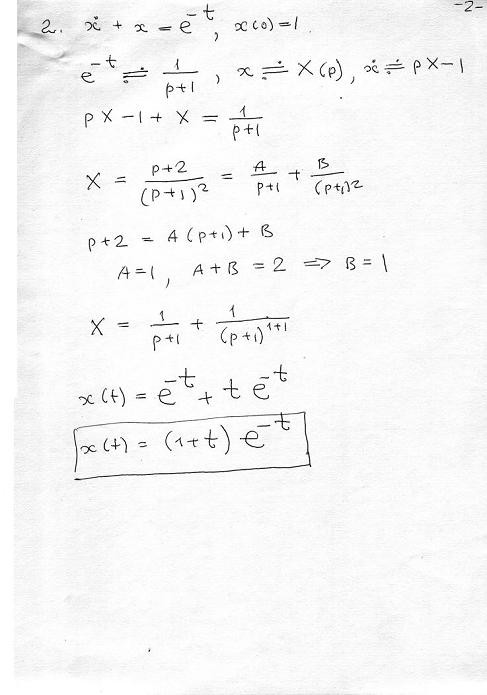 -2-
2. ẋ + x = e^-t, x(0)=1
e^-t ≓ 1/(p+1), x ≓ X(p), ẋ ≓ pX-1
pX-1+X = 1/(p+1)
X = (p+2)/(p+1)^2 = A/(p+1) + B/(p+1)^2
p+2 = A(p+1)+B
A=1, A+B=2 ⇒ B=1
X = 1/(p+1) + 1/(p+1)^(1+1)
x(t) = e^-t + t e^-t
x(t) = (1+t) e^-t